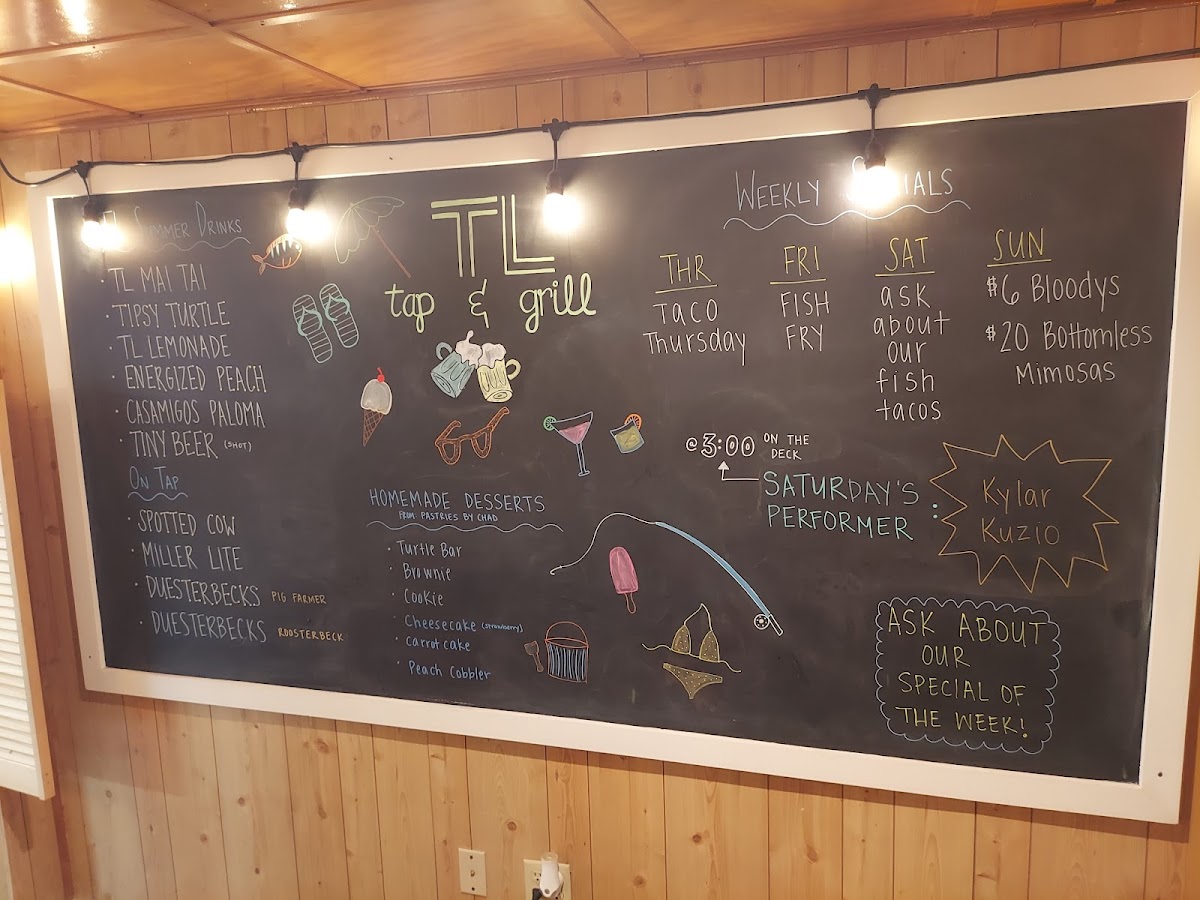 TL SUMMER DRINKS
· TL MAI TAI
· TIPSY TURTLE
· TL LEMONADE
· ENERGIZED PEACH
· CASAMIGOS PALOMA
· TINY BEER (SHOT)
ON TAP
· SPOTTED COW
· MILLER LITE
· DUESTERBECKS PIG FARMER
· DUESTERBECKS ROOSTERBECK
TL
tap & grill
HOMEMADE DESSERTS
FROM: PASTRIES BY CHAD
· Turtle Bar
· Brownie
· Cookie
· Cheesecake (strawberry)
· Carrot cake
· Peach Cobbler
WEEKLY SPECIALS
THR
TACO
Thursday
FRI
FISH
FRY
SAT
ask
about
our
fish
tacos
SUN
$6 Bloodys
$20 Bottomless
Mimosas
@ 3:00 ON THE
DECK
SATURDAY'S
PERFORMER :
Kylar
Kuzio
ASK ABOUT
OUR
SPECIAL OF
THE WEEK!